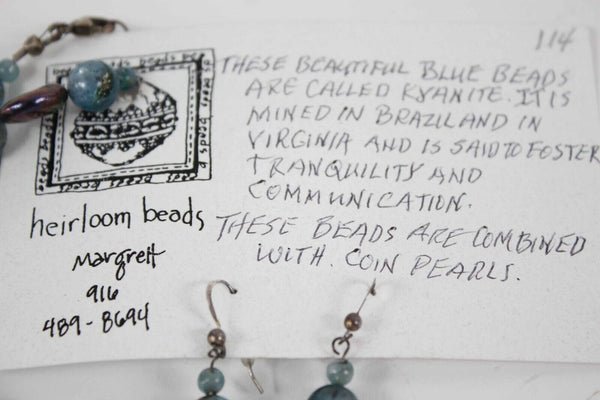 114
THESE BEAUTIFUL BLUE BEADS
ARE CALLED KYANITE. IT IS
MINED IN BRAZIL AND IN
VIRGINIA AND IS SAID TO FOSTER
TRANQUILITY AND
COMMUNICATION.
THESE BEADS ARE COMBINED
WITH. COIN PEARLS.
heirloom beads
Margrett
916
489-8694